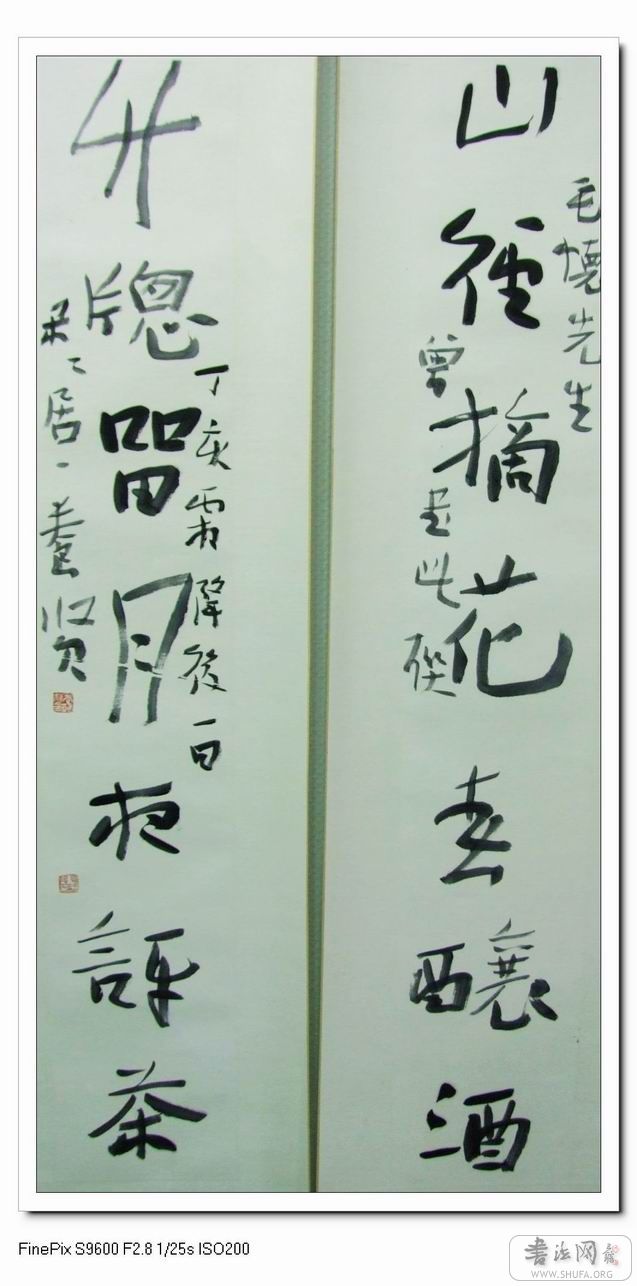 山径摘花春酿酒
毛憢先生
曾书此联
竹牎留月夜評茶
丁亥霜降後一日
居一养贤
FinePix S9600 F2.8 1/25s ISO200
书法网
WWW.SHUFA.ORG